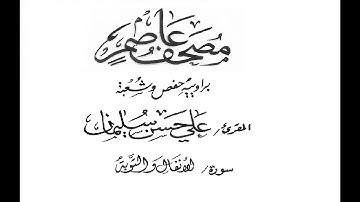 مصحف عاصم
براوييه حفص وشعبة
المقرئ / علي حسن سليمان
سورة / الأنفال والتوبة